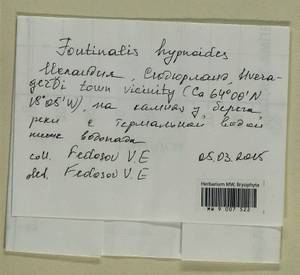 Fontinalis hypnoides
Исландия, Сюдюрланд, Hvera-
gerði town vicinity (Ca 64°00'N
18°05'W), на камнях у берега
реки с термальной водой
ниже водопада
coll. Fedosov V.E 05.03.2015
det. Fedosov V.E
Herbarium MW, Bryophyta
MW 9 007 522